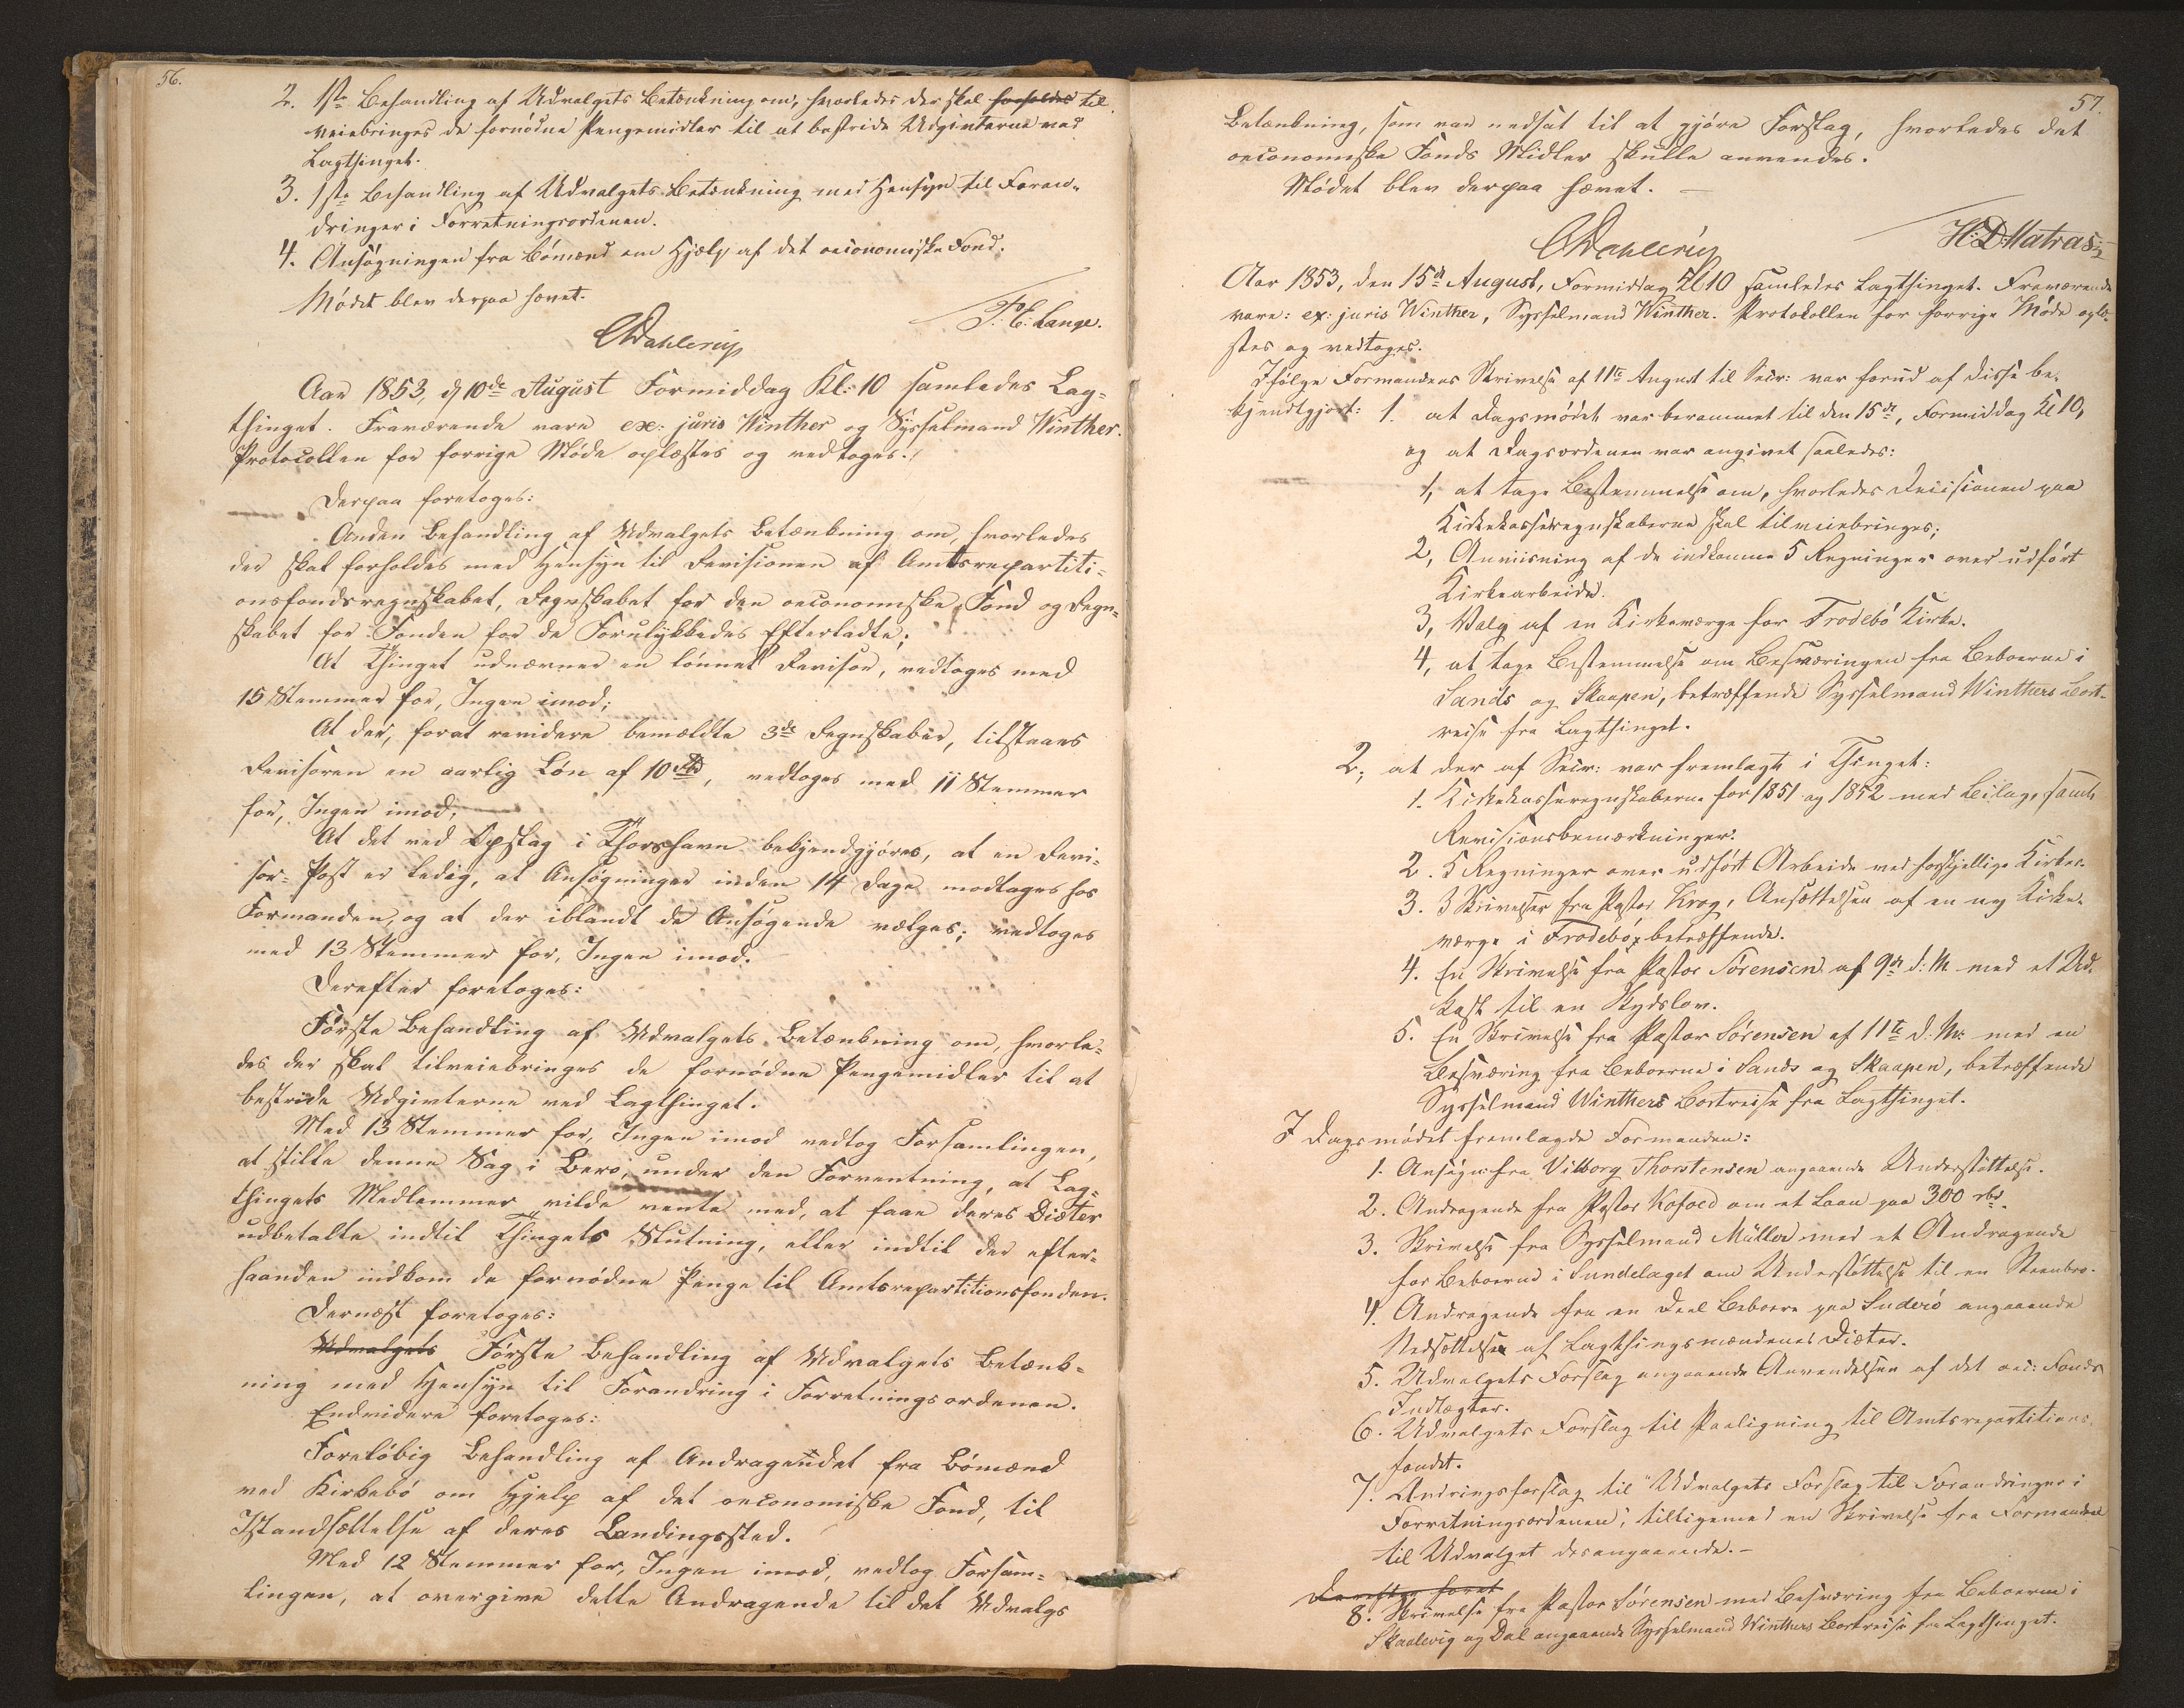 56.
2. 1ste Behandling af Udvalgets Betænkning om, hvorledes der skal forholdes til
veiebringes de fornødne Pengemidler til at bestride Udgivterne ved
Lagthinget.
3. 1ste Behandling af Udvalgets Betænkning med Hensyn til Foran-
dringer i Forretningsordenen.
4. Ansøgningen fra Bömænd om Hjælp af det oeconomiske Fond.
Mödet blev derpaa hævet.
Dahlerup
Lange.
Aar 1853, d 10de August Formiddag Kl: 10 samledes Lag-
thinget. Fraværende vare ex: juris Winther og Sysselmand Winther.
Protocollen for forrige Möde oplæstes og vedtoges.
Derpaa foretoges:
Anden Behandling af Udvalgets Betænkning om, hvorledes
der skal forholdes med Hensyn til Revisionen af Amtsrepartiti-
onsfondsregnskabet, Regnskabet for den oeconomiske Fond og Regn-
skabet for Fonden for de Forulykkedes Efterladte;
At Thinget udnævner en lönnet Revisor, vedtoges med
15 Stemmer for, Ingen imod;
At der, forat revidere bemældte 3de Regnskaber, tilstaaes
Revisoren en aarlig Løn af 10 rbd, vedtoges med 11 Stemmer
for, Ingen imod;
At det ved Opslag i Thorshavn bekjendtgjöres, at en Revi-
sor-Post er ledig, at Ansögninger inden 14 Dage modtages hos
Formanden, og at der iblandt de Ansögende vælges; vedtoges
med 13 Stemmer for, Ingen imod.
Derefter foretoges:
Förste Behandling af Udvalgets Betænkning om, hvorle-
des der skal tilveiebringes de fornödne Pengemidler til at
bestride Udgivterne ved Lagthinget.
Med 13 Stemmer for, Ingen imod vedtog Forsamlingen,
at stille denne Sag i Bero, under den Forventning, at Lag-
thingets Medlemmer vilde vente med, at faae deres Diæter
udbetalte indtil Thingets Slutning, eller indtil der efter-
haanden indkom de fornödne Penge til Amtsrepartitionsfonden.
Dernæst foretoges:
Udvalgets Förste Behandling af Udvalgets Betænk-
ning med Hensyn til Forandring i Forretningsordenen.
Endvidere foretoges:
Forelöbig Behandling af Andragendet fra Bömænd
ved Kirkebö om Hjelp af det oeconomiske Fond, til
Istandsættelse af deres Landingssted.
Med 12 Stemmer for, Ingen imod, vedtog Forsam-
lingen, at overgive dette Andragende til det Udvalgs
57.
Betænkning, som var nedsat til at gjöre Forslag, hvorledes det
oeconomiske Fonds Midler skulle anvendes.
Mödet blev derpaa hævet. —
Dahlerup
H: D: Matras
Aar 1853, den 15de August, Formiddag Kl 10 samledes Lagthinget. Fraværende
vare: ex: juris Winther, Sysselmand Winther. Protokollen for forrige Möde oplæ-
stes og vedtoges.
Ifölge Formandens Skrivelse af 11te August til Secr: var forud af disse be-
kjendtgjort: 1. at Dagsmödet var berammet til den 15de, Formiddag Kl 10,
og at Dagsordenen var angivet saaledes:
1, at tage Bestemmelse om, hvorledes Decisionen paa
Kirkekasseregnskaberne skal tilveiebringes;
2, Anviisning af de indkomne 5 Regninger over udfört
Kirkearbeide.
3, Valg af en Kirkeværge for Frodebö Kirke.
4, at tage Bestemmelse om Besværingen fra Beboerne i
Sands og Skaapen, betræffende Sysselmand Winthers Bort-
reise fra Lagthinget.
2, at der af Secr: var fremlagt i Thinget:
1. Kirkekasseregnskaberne for 1851 og 1852 med Bilage, samt
Revisionsbemærkninger.
2. 5 Regninger over udfört Arbeide ved forskjellige Kirker.
3. 3 Skrivelser fra Pastor Krog, Ansættelsen af en ny Kirke-
værge i Frodebö betræffende.
4. En Skrivelse fra Pastor Sörensen af 9de d: M med et Ud-
kast til en Skydslov.
5. En Skrivelse fra Pastor Sörensen af 11te d: M: med en
Besværing fra Beboerne i Sands og Skaapen, betræffende
Sysselmand Winthers Bortreise fra Lagthinget.
I Dagsmödet fremlagde Formanden:
1. Ansögn: fra Vilborg Thorstensen angaaende Understöttelse.
2. Andragende fra Pastor Kofoed om et Laan paa 300 rbd.
3. Skrivelse fra Sysselmand Müller med et Andragende
for Beboerne i Sundelaget om Understöttelse til en Steenbro.
4. Andragende fra en Deel Beboere paa Suderö angaaende
Nedsættelsen af Lagthingsmændenes Diæter.
5. Udvalgets Forslag angaaende Anvendelsen af det oec: Fonds
Indtægter.
6. Udvalgets Forslag til Paaligning til Amtsrepartitions-
fondet.
7. Ændringsforslag til "Udvalgets Forslag til Forandringer i
Forretningsordenen", tilligemed en Skrivelse fra Formanden
til Udvalget desangaaende. —
Derefter foret
8. Skrivelse fra Pastor Sörensen med Besværing fra Beboerne i
Skaalevig og Dal angaaende Sysselmand Winthers Bortreise fra Lagthinget.